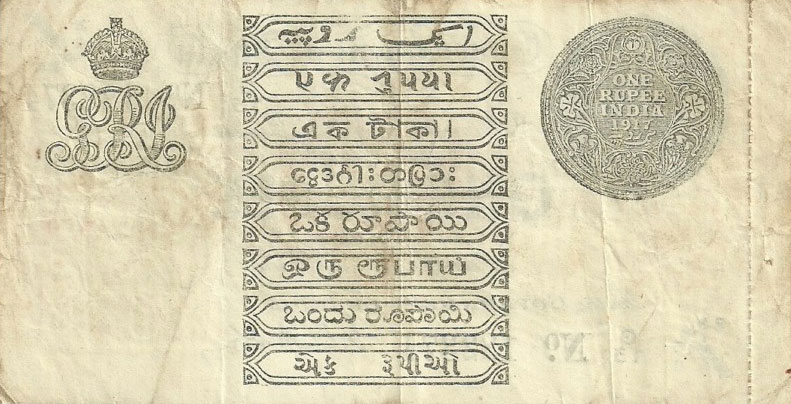 GRI
ایک روپیہ
𑂉𑂍 𑂩𑂳𑂣𑂨𑂰
এক টাকা
ငွေဒင်္ဂါး တပြား
ఒక రూపాయి
ஒரு ரூபாய்
ಒಂದು ರೂಪಾಯಿ
એક રૂપીઓ
ONE
RUPEE
INDIA
1917